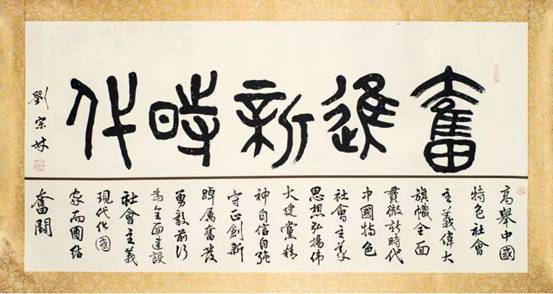 奮進新時代
高舉中國
特色社會
主義偉大
旗幟全面
貫徹新時代
中國特色
社會主義
思想弘揚偉
大建黨精
神自信自強
守正創新
踔厲奮發
勇毅前行
為全面建設
社會主義
現代化國
家而團結
奮鬪
劉宗